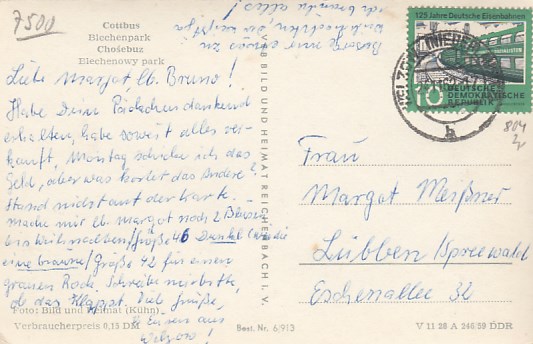 7500
Cottbus
Blechenpark
Chośebuz
Blechenowy park
Liebe Margot, lb. Bruno!
Habe Dein Päckchen dankend
erhalten, habe soweit alles ver-
kauft, Montag schicke ich das
Geld, aber was kostet das Andere?
Stand nicht auf der Karte.
mache mir lb. Margot noch 2 Blusen
bis Weihnachten/Größe 46 Dunkel
eine braune/Größe 42 für einen
grauen Rock. Schreibe mir bitte,
ob das klappt. Viele Grüße,
Euren aus
Welzow!
Besorge mir etwas zu
alles!
Foto: Bild und Heimat (Kühn)
Verbraucherpreis 0,15 DM
VEB BILD UND HEIMAT REICHENBACH I. V.
Best. Nr. 6/913
125 Jahre Deutsche Eisenbahnen
10
DEUTSCHE
DEMOKRATISCHE
REPUBLIK
WELZOW (NIEDERLAUSITZ)
b
804
Frau
Margot Meißner
Lübben/Spreewald
Eschenallee 32
V 11 28 A 246/59 DDR